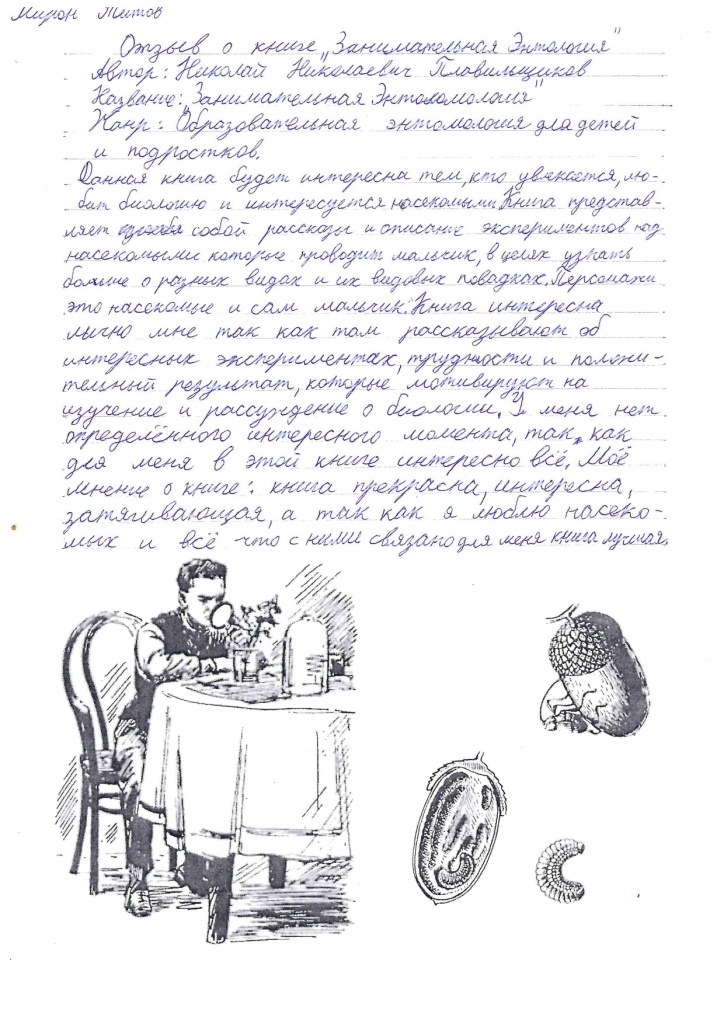 Мирон Титов
Отзыв о книге „Занимательная Энтология"
Автор: Николай Николаевич Плавильщиков
Название: "Занимательная Энтоломология"
Жанр: Образовательная энтомология для детей
и подростков.
Данная книга будет интересна тем, кто увлекается, лю-
бит биологию и интересуется насекомыми. Книга представ-
ляет собой рассказы и описание экспериментов над
насекомыми которые проводит мальчик, в целях узнать
больше о разных видах и их видовых повадках. Персонажи
это насекомые и сам мальчик. Книга интересна
лично мне так как там рассказывают об
интересных экспериментах, трудности и положи-
тельный результат, которые мотивируют на
изучение и рассуждение о биологии. У меня нет
определённого интересного момента, так как
для меня в этой книге интересно всё. Моё
мнение о книге: книга прекрасна, интересна,
затягивающая, а так как я люблю насеко-
мых и всё что с ними связано для меня книга лучшая.